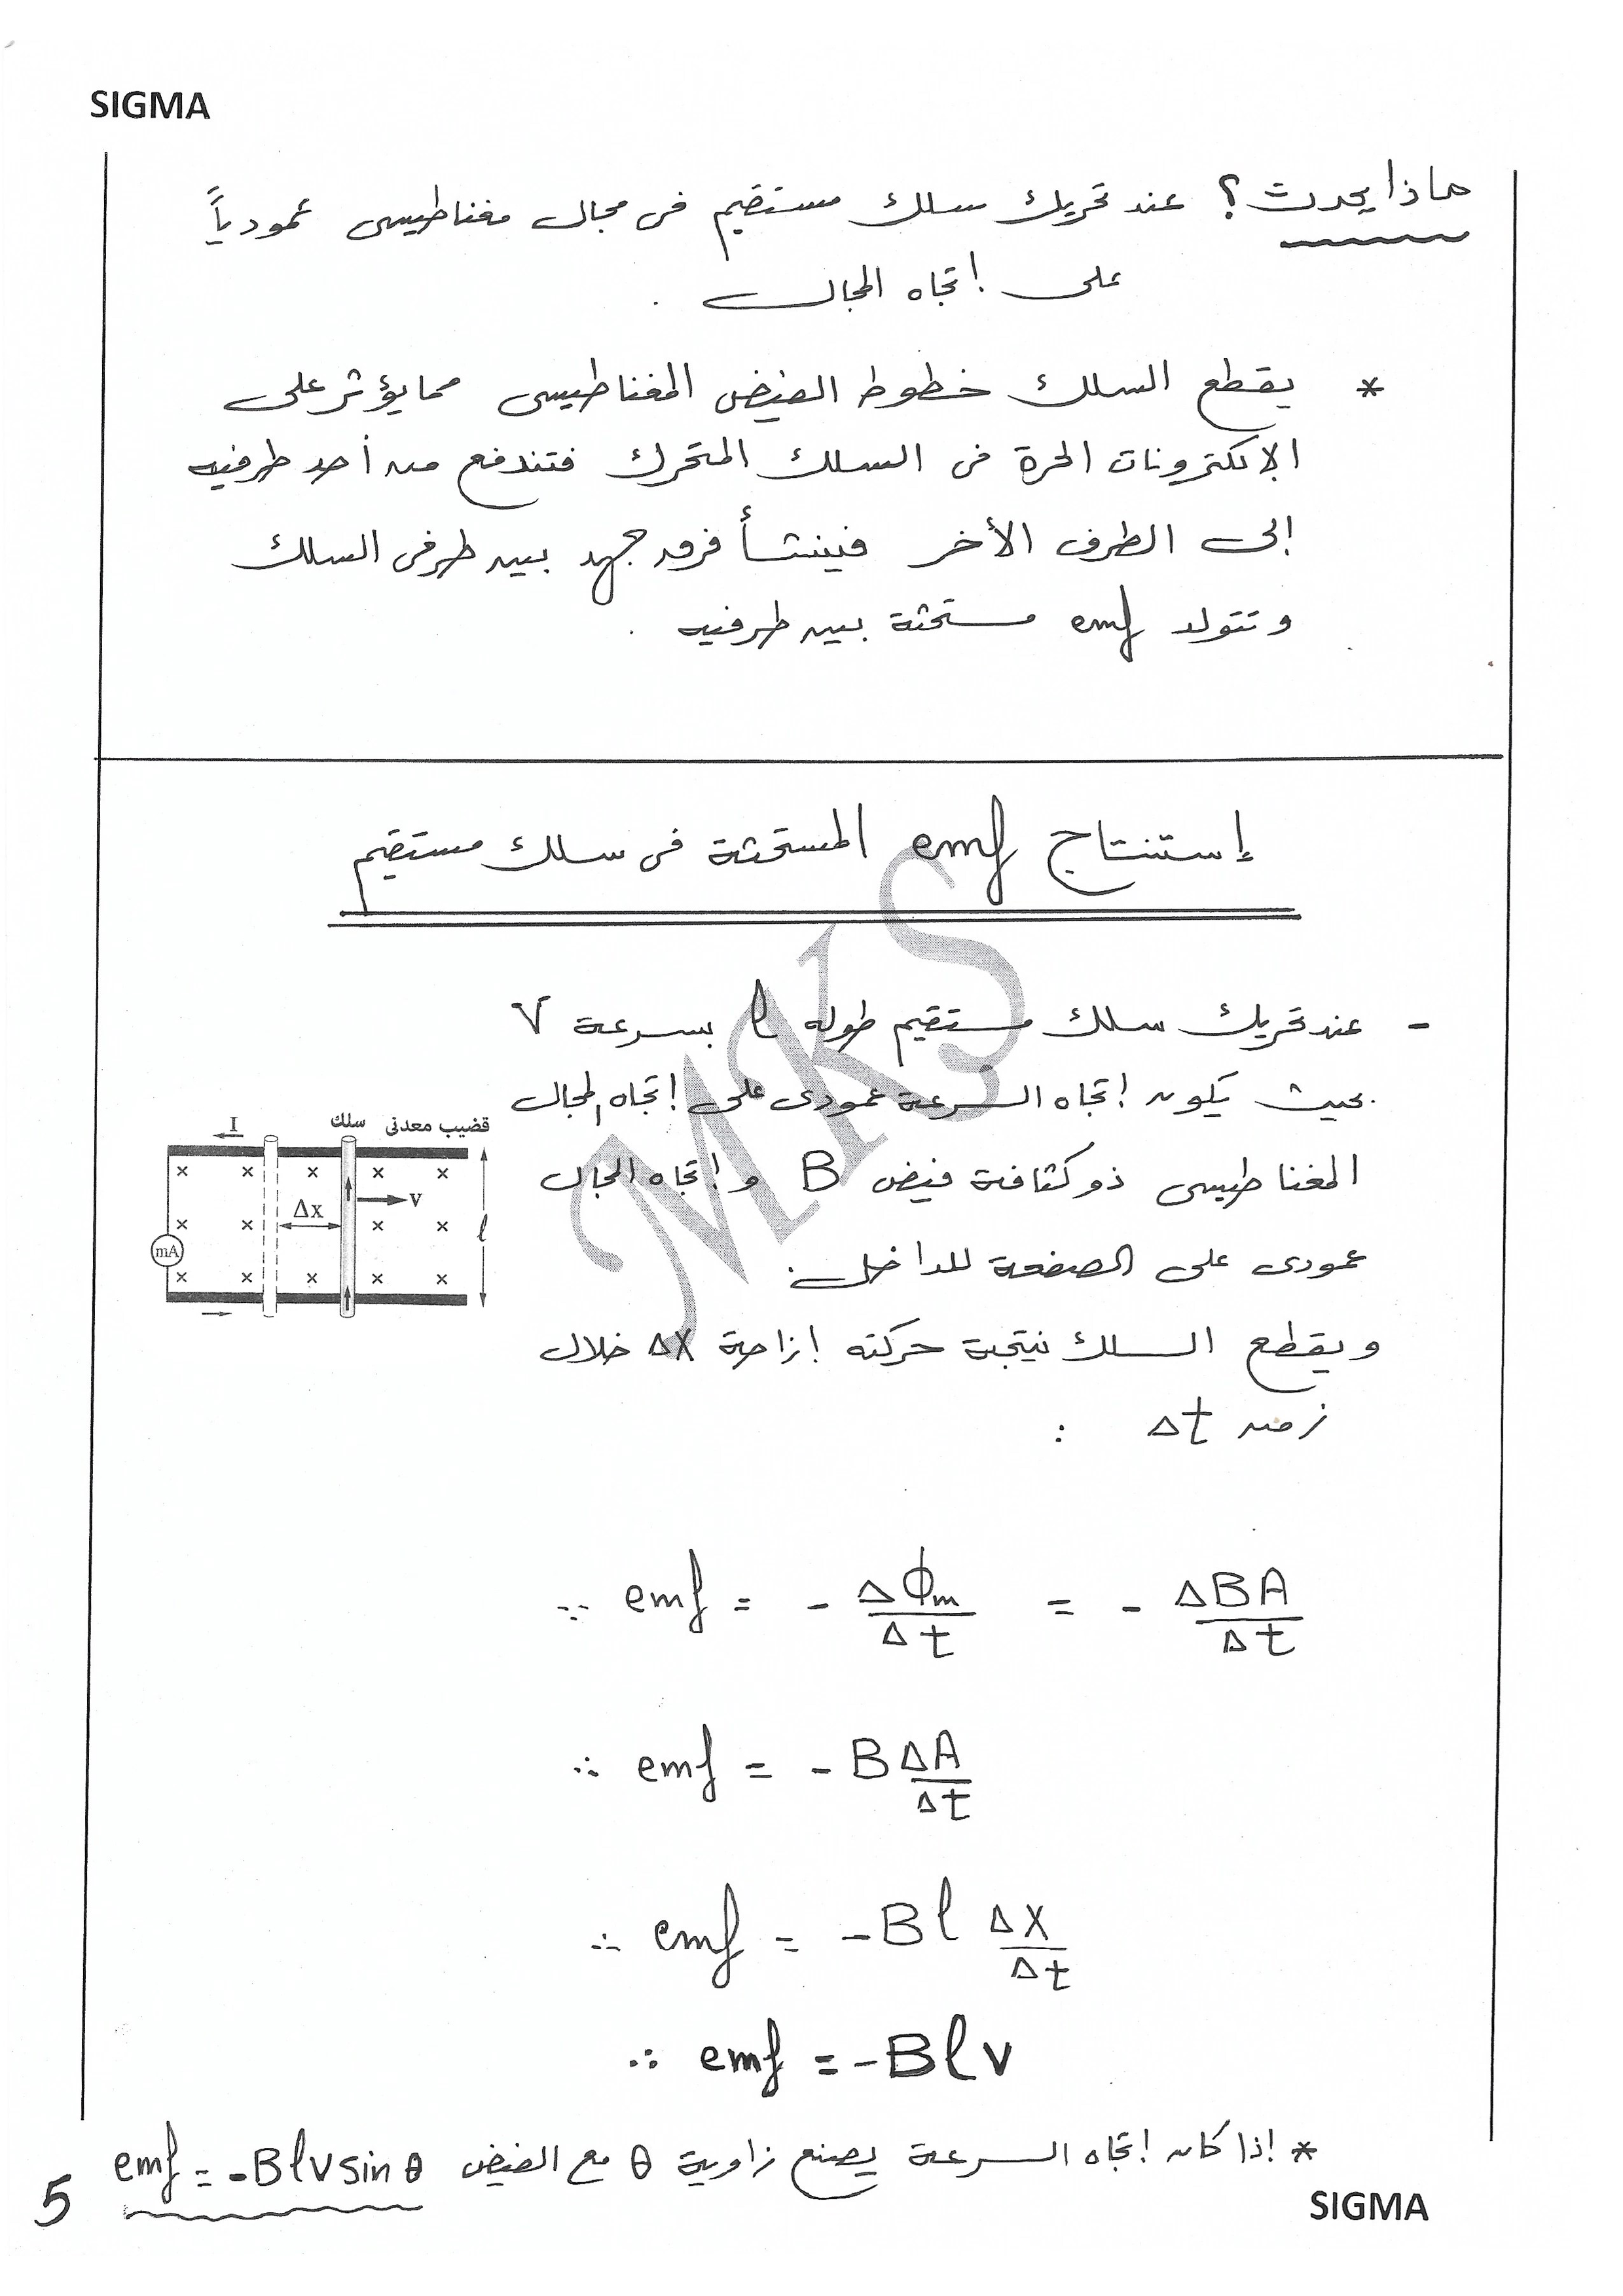 SIGMA
ماذا يحدث ؟ عند تحريك سلك مستقيم فى مجال مغناطيسى عمودياً
على إتجاه المجال .
* يقطع السلك خطوط الفيض المغناطيسى مما يؤثر على
الإلكترونات الحرة فى السلك المتحرك فتندفع من أحد طرفيه
إلى الطرف الأخر فينشأ فرق جهد بين طرفى السلك
وتتولد emf مستحثة بين طرفيه .
إستنتاج emf المستحثة فى سلك مستقيم
- عند تحريك سلك مستقيم طوله l بسرعة V
بحيث يكون إتجاه السرعة عمودى على إتجاه المجال
المغناطيسى ذو كثافة فيض B و إتجاه المجال
عمودى على الصفحة للداخل .
ويقطع السلك نتيجة حركته إزاحة Δx خلال
زمن Δt :
قضيب معدنى سلك I
Δx V l
mA
MKS
∵ emf = - Δϕm/Δt = - ΔBA/Δt
∴ emf = - B ΔA/Δt
∴ emf = -Bl Δx/Δt
∴ emf = -Blv
* إذا كان إتجاه السرعة يصنع زاوية θ مع الفيض emf = -Blv sin θ
5
SIGMA